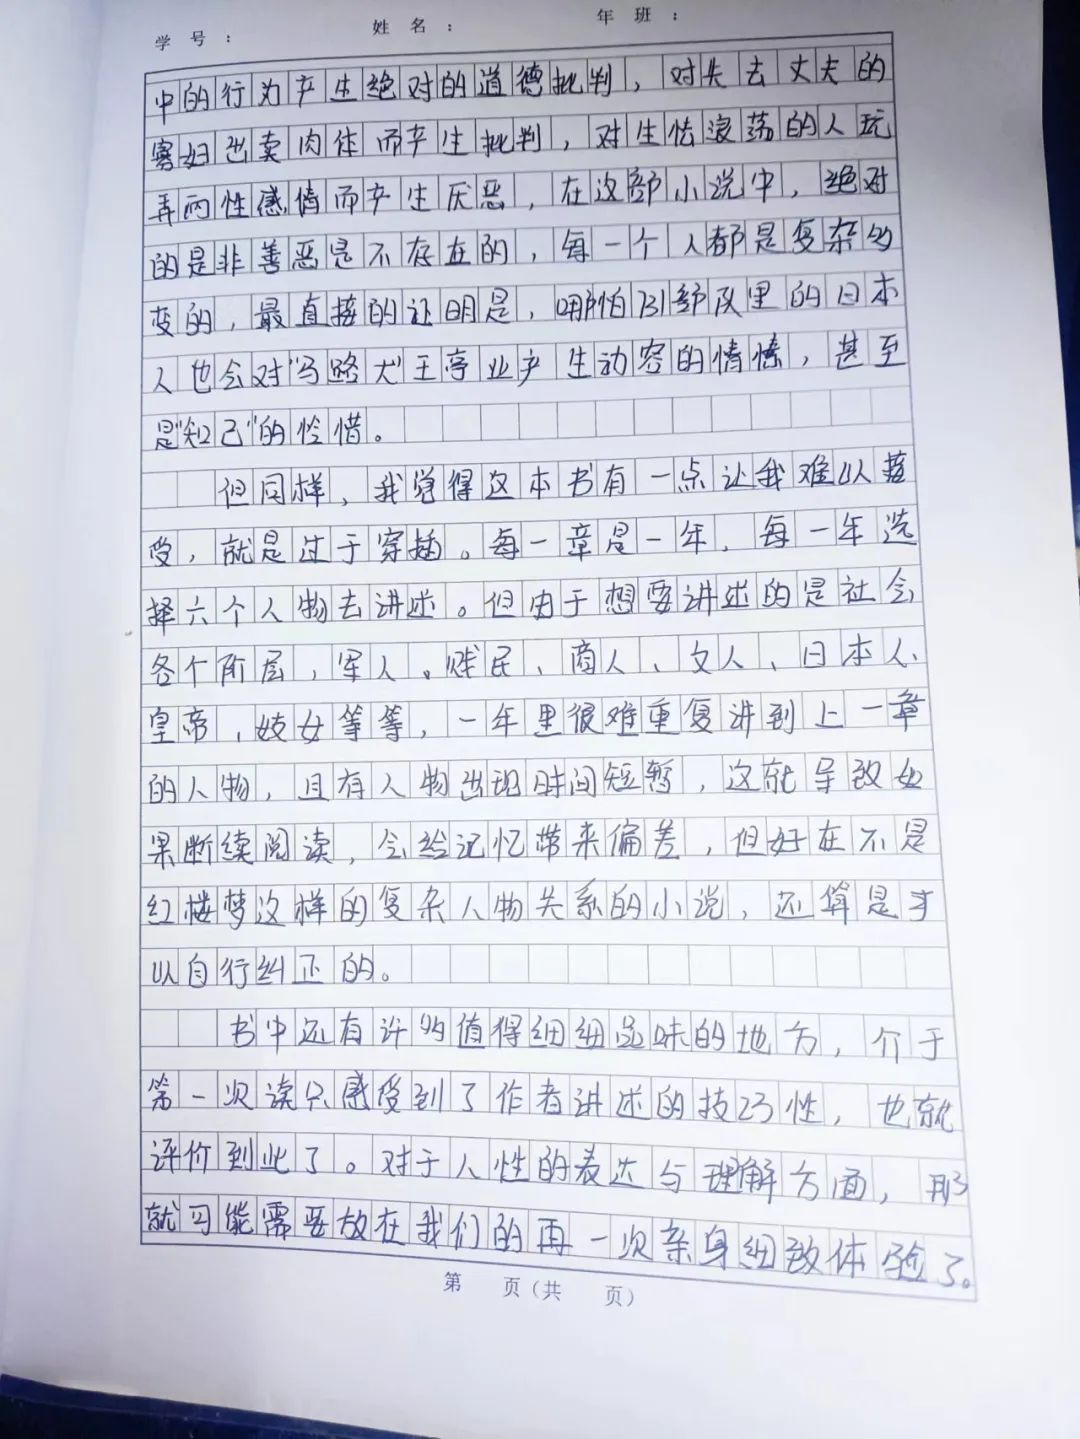 学号： 姓名： 年班：
中的行为产生绝对的道德批判，对失去丈夫的
寡妇出卖肉体而产生批判，对生性浪荡的人玩
弄两性感情而产生厌恶，在这部小说中，绝对
的是非善恶是不存在的，每一个人都是复杂多
变的，最直接的证明是，哪怕731部队里的日本
人也会对“马路大”王亭业产生动容的情愫，甚至
是“知己”的怜惜。
但同样，我觉得这本书有一点让我难以接
受，就是过于穿插。每一章是一年，每一年选
择六个人物去讲述。但由于想要讲述的是社会
各个阶层，军人、贱民、商人、文人、日本人、
皇帝，妓女等等，一年里很难重复讲到上一章
的人物，且有人物出现时间短暂，这就导致如
果断续阅读，会给记忆带来偏差，但好在不是
红楼梦这样的复杂人物关系的小说，还算是可
以自行纠正的。
书中还有许多值得细细品味的地方，介于
第一次读只感受到了作者讲述的技巧性，也就
评价到此了。对于人性的表达与理解方面，那
就可能需要放在我们的再一次亲身细致体验了。
第 页（共 页）